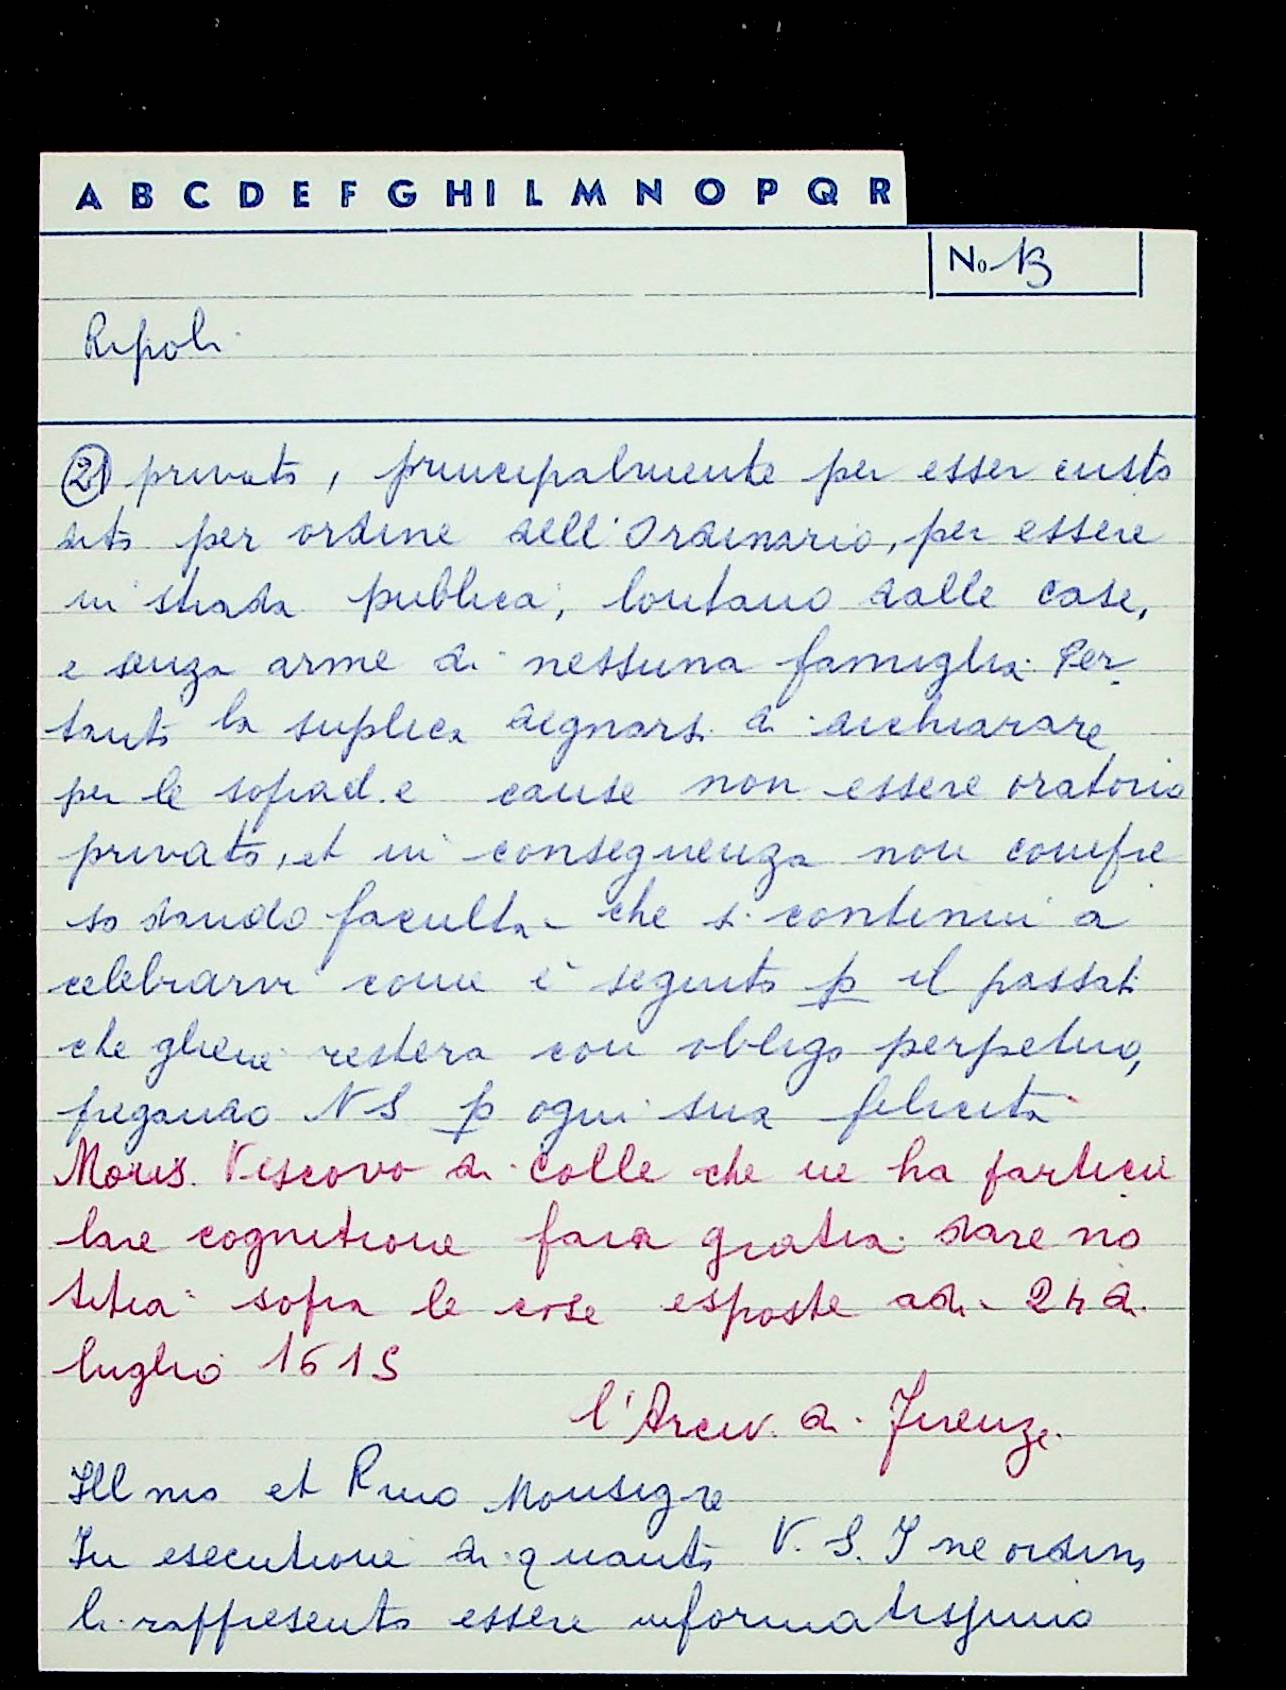 A B C D E F G H I L M N O P Q R
No 13
Ripoli
21 privato, principalmente per esser custo
dito per ordine dell'Ordinario, per essere
in strada publica, lontano dalle case,
e senza arme di nessuna famiglia. Per
tanto la suplica degnarsi di dichiarare
per le soprad.e cause non essere oratorio
privato, et in conseguenza non compre
so dando facultà che si continui a
celebrarvi come è seguito p il passato
che gliene resterà con obligo perpetuo,
pregando N S p ogni sua felicità
Mons. Vescovo di Colle che ne ha particu
lare cognitione farà gratia dare no
titia sopra le cose esposte adi 24 di
luglio 1615
l'Arciv. di Firenze
Ill mo et R mo Monsig re
In esecutione di quanto V. S. I ne ordinò
li rappresento essere informatissimo